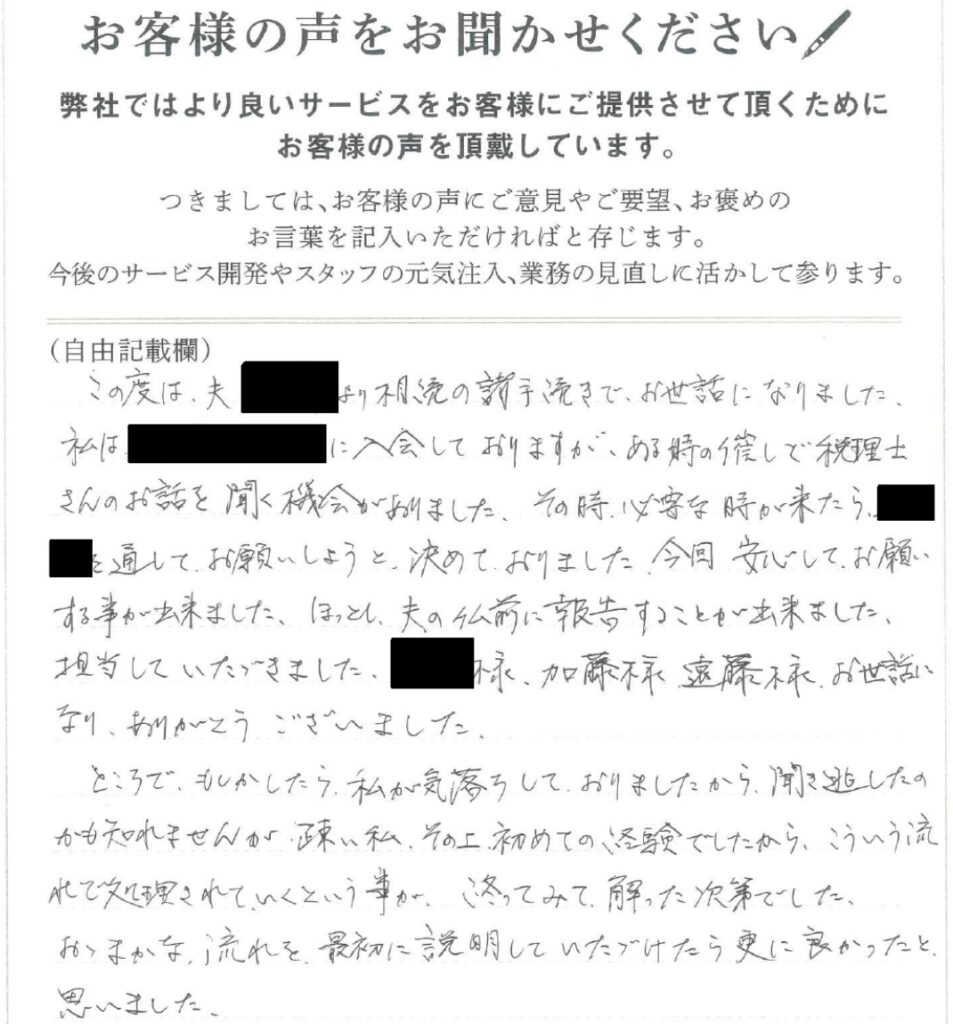 お客様の声をお聞かせください
弊社ではより良いサービスをお客様にご提供させて頂くために
お客様の声を頂戴しています。
つきましては、お客様の声にご意見やご要望、お褒めの
お言葉を記入いただければと存じます。
今後のサービス開発やスタッフの元気注入、業務の見直しに活かして参ります。
(自由記載欄)
この度は、夫 より相続の諸手続きで、お世話になりました、
私は に入会しておりますが、ある時の催しで税理士
さんのお話を聞く機会がありました、その時、必要な時が来たら、
を通して、お願いしようと、決めて、おりました、今回 安心して、お願い
する事が出来ました、ほっとし、夫の仏前に報告することが出来ました、
担当していたづきました、 様、加藤様、遠藤様、お世話に
なり、ありがとうございました、
ところで、もしかしたら、私が気落ちして、おりましたから、聞き逃したの
かも知れませんが、疎い私、その上、初めての経験でしたから、こういう流
れで処理されて、いくという事が、終ってみて、解った次第でした、
おゝまかな、流れを、最初に説明していたづけたら更に良かったと、
思いました、